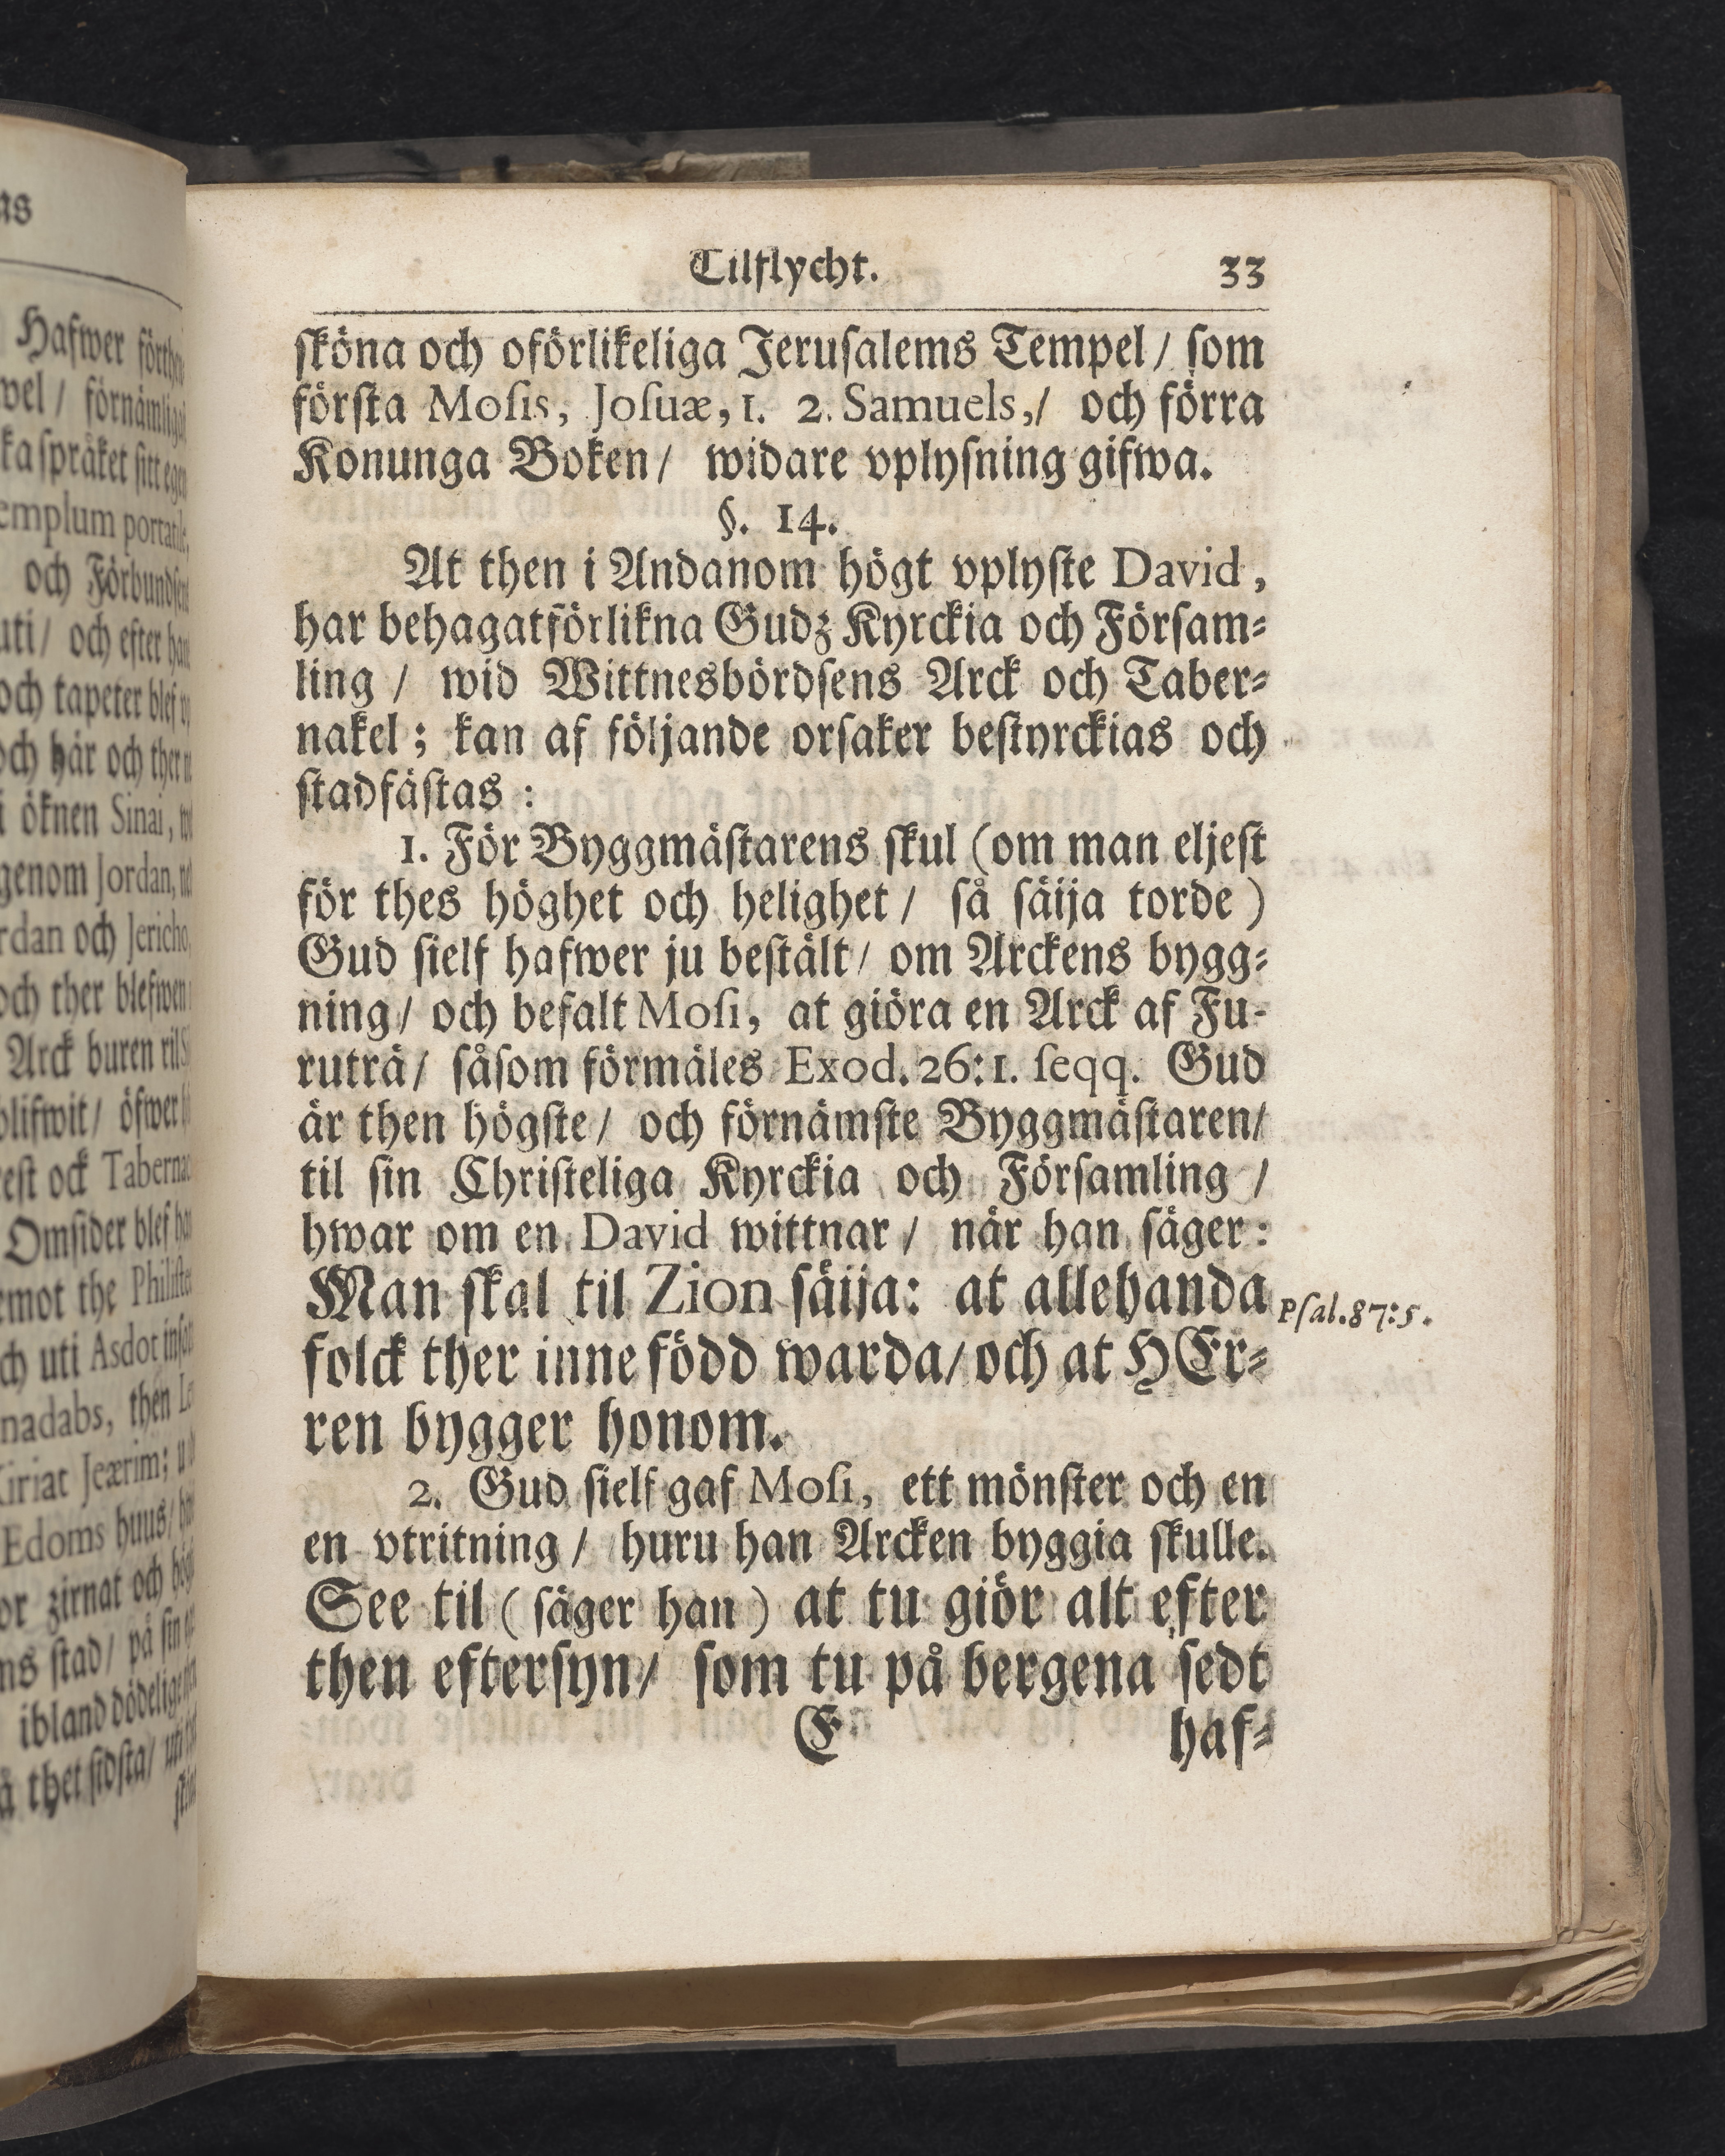 Tilflycht. 33
sköna och oförlikeliga Jerusalems Tempel / som
första Mosis, Josuæ, 1. 2. Samuels,/ och förra
Konunga Boken / widare vplysning gifwa.
§. 14.
At then i Andanom högt vplyste David,
har behagat förlikna Gudz Kyrckia och Församͤ-
ling / wid Wittnesbördsens Arck och Taber-
nakel; kan af följande orsaker bestyrckias och
stadfästas :
1. För Byggmästarens skul (om man eljest
för thes höghet och helighet / så säija torde )
Gud sielf hafwer ju bestält / om Arckens bygg-
ning / och befalt Mosi, at giöra en Arck af Fu-
ruträ / såsom förmäles Exod. 26:1. seqq. Gud
är then högste / och förnämste Byggmästaren/
til sin Christeliga Kyrckia och Församling /
hwar om en David wittnar / när han säger:
Man skal til Zion säija: at allehanda
Psal. 87:5.
folck ther inne född warda / och at HEr-
ren bygger honom.
2. Gud sielf gaf Mosi, ett mönster och en
en vtritning / huru han Arcken byggia skulle.
See til ( säger han ) at tu giör alt efter
then eftersyn / som tu på bergena sedt
E haf-